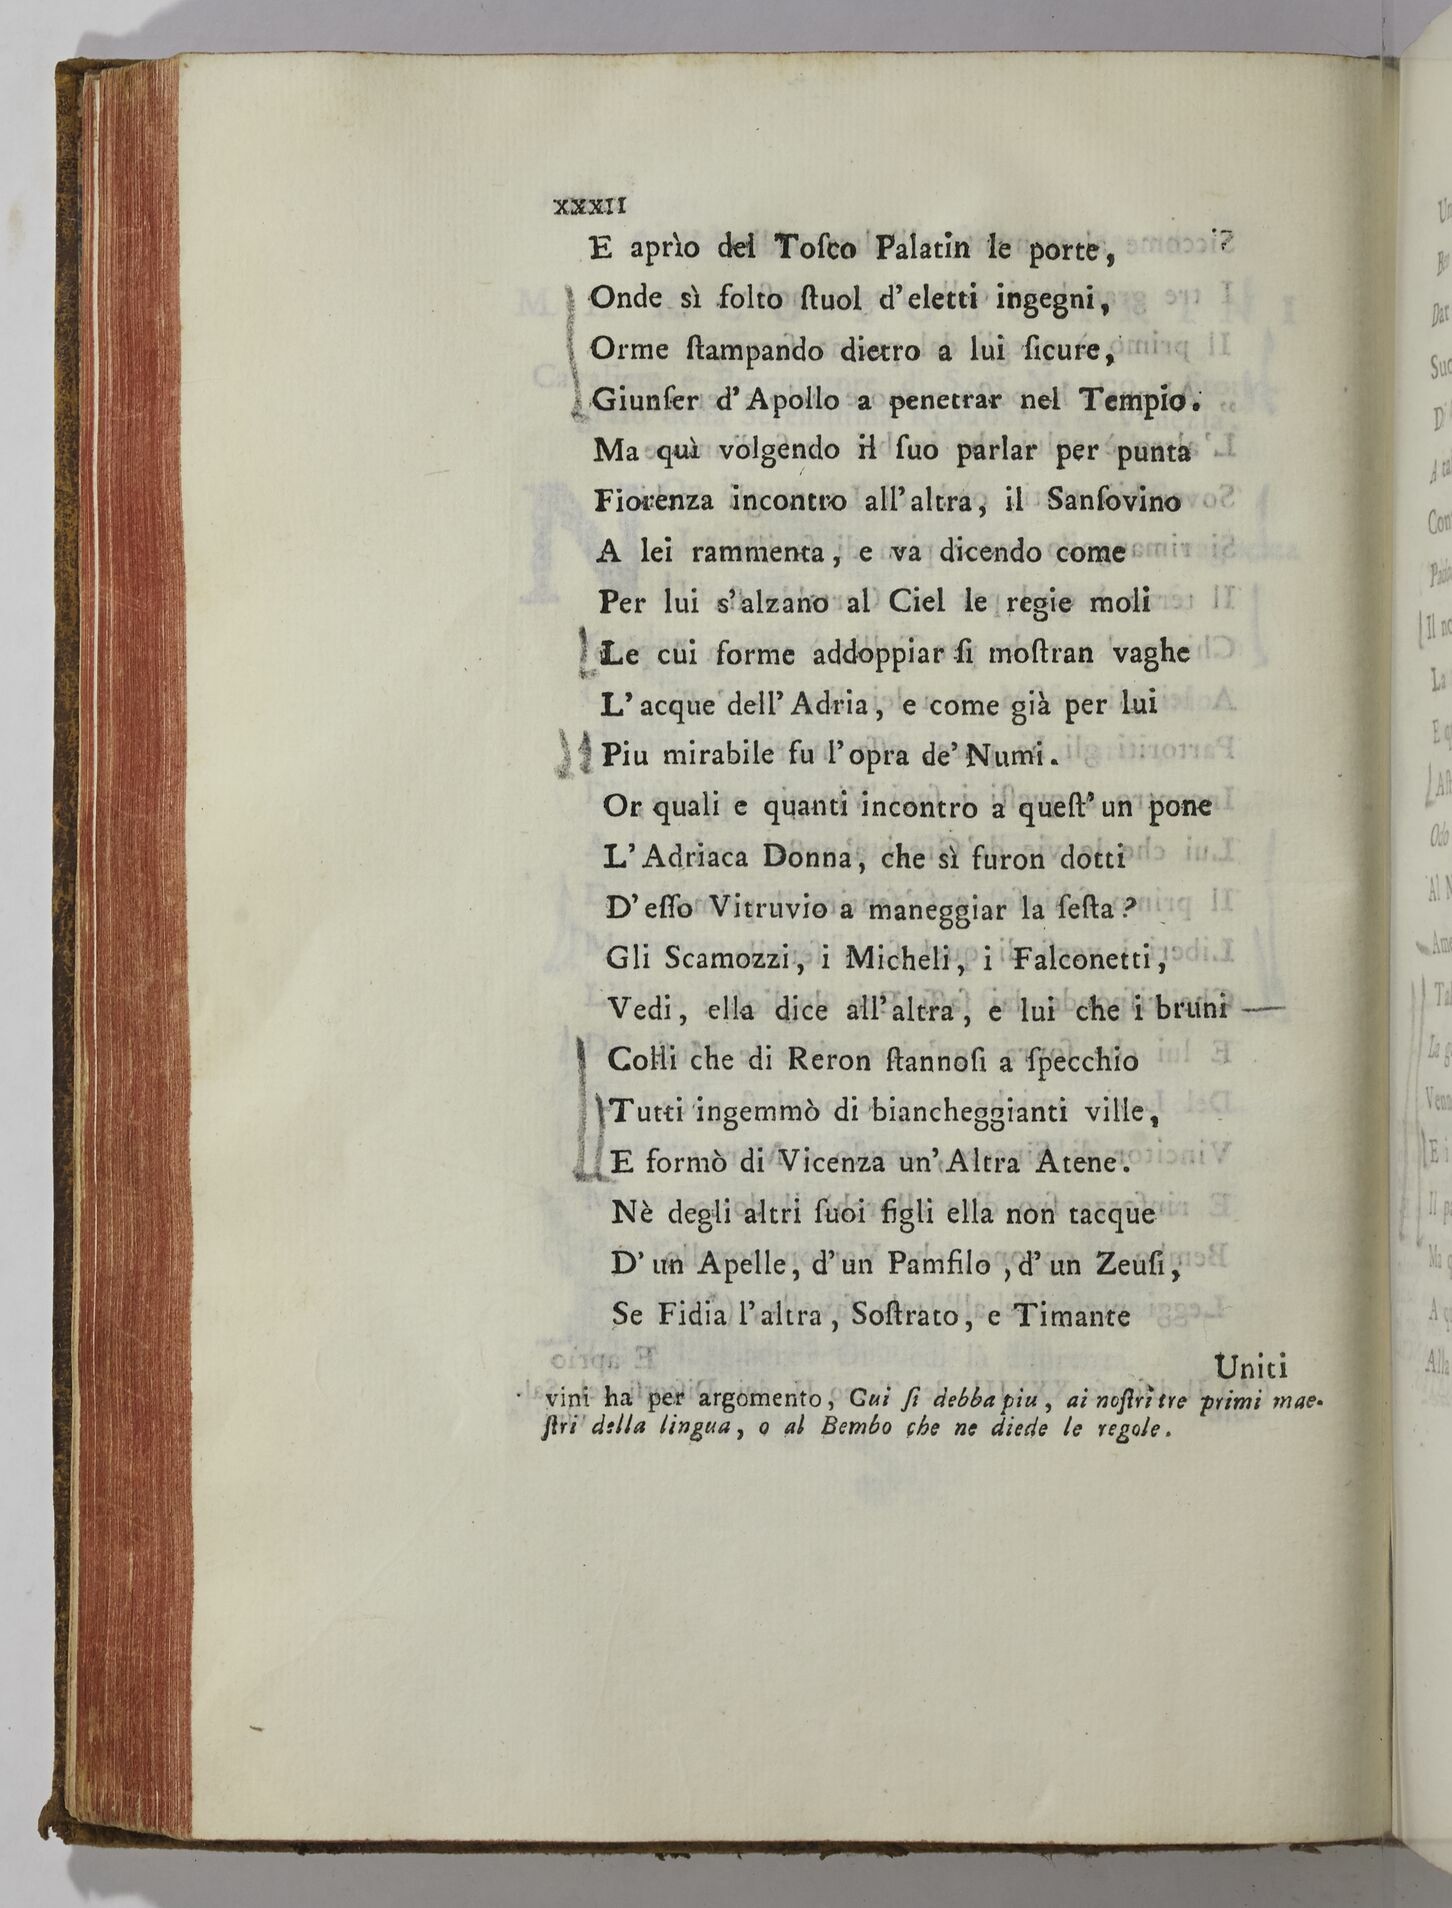 XXXII
E aprìo del Toſco Palatin le porte,
Onde sì folto ſtuol d'eletti ingegni,
Orme ſtampando dietro a lui ſicure,
Giunſer d'Apollo a penetrar nel Tempio.
Ma quì volgendo il ſuo parlar per punta
Fiorenza incontro all'altra, il Sanſovino
A lei rammenta, e va dicendo come
Per lui s'alzano al Ciel le regie moli
Le cui forme addoppiar ſi moſtran vaghe
L'acque dell'Adria, e come già per lui
Piu mirabile fu l'opra de' Numi.
Or quali e quanti incontro a queſt'un pone
L'Adriaca Donna, che sì furon dotti
D'eſſo Vitruvio a maneggiar la ſeſta?
Gli Scamozzi, i Micheli, i Falconetti,
Vedi, ella dice all'altra, e lui che i bruni
Colli che di Reron ſtannoſi a ſpecchio
Tutti ingemmò di biancheggianti ville,
E formò di Vicenza un'Altra Atene.
Nè degli altri ſuoi figli ella non tacque
D'un Apelle, d'un Pamfilo, d'un Zeuſi,
Se Fidia l'altra, Soſtrato, e Timante
Uniti
vini ha per argomento, Cui ſi debba piu, ai noſtri tre primi mae-
ſtri della lingua, o al Bembo che ne diede le regole.